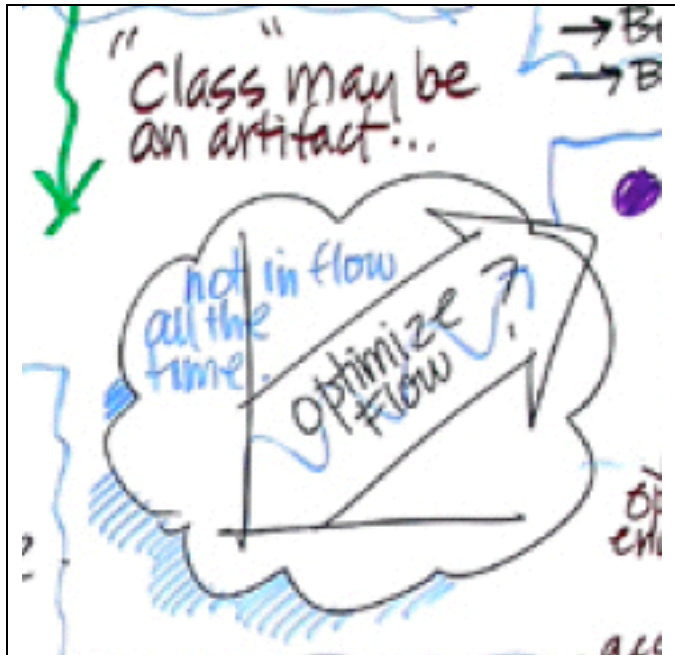 → B
"Class" may be
→ B
an artifact...
not in flow
all the
time.
Optimize
Flow
?
op